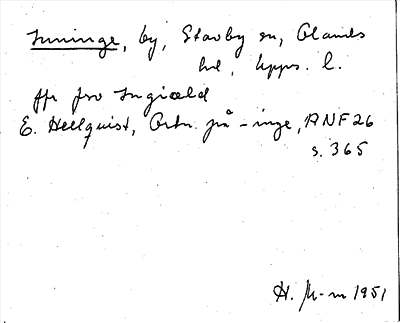 Inninge, by, Stavby sn, Olands
hd, Upps. l.
ffr fsv Ingiæld
E. Hellquist, Ortn. på -inge, ANF 26
s. 365
H. M-m 1951